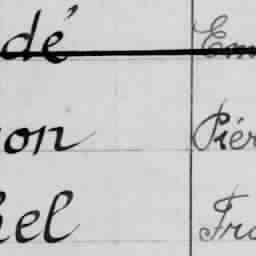 dé Em
on Piér
hel Fra